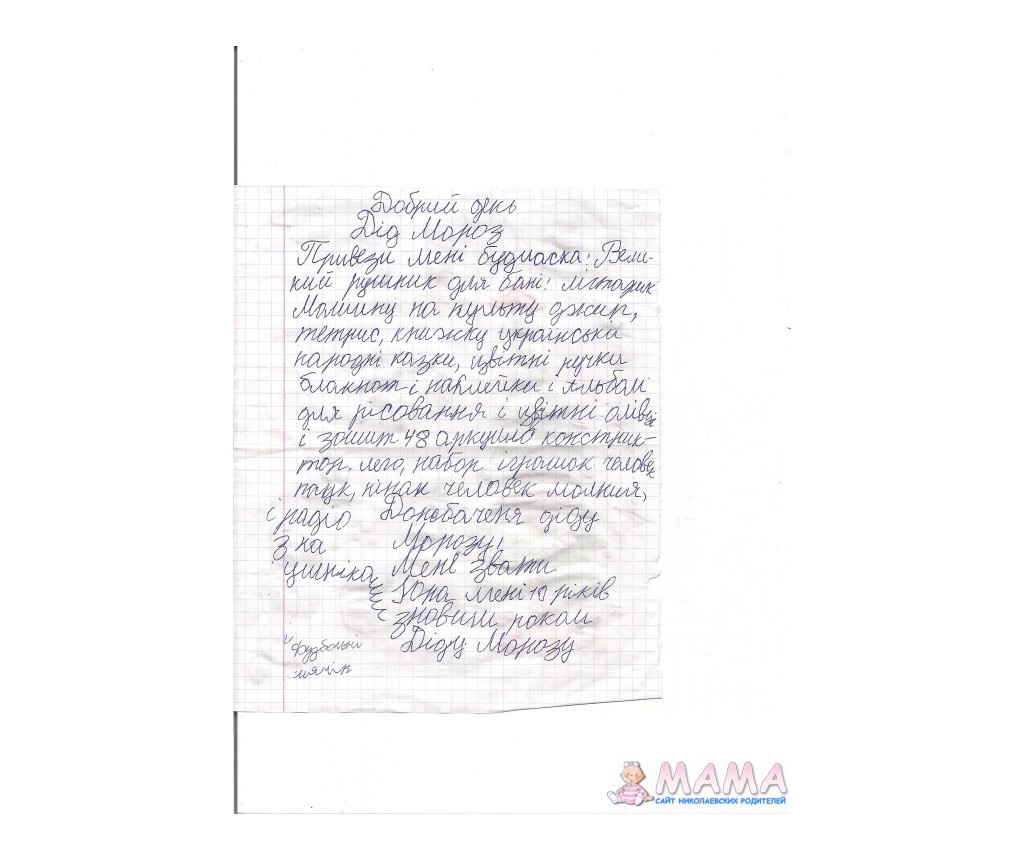 Добрий день
Дід Мороз
Привези мені будиласка: Вели-
кий рушник для бані: ліхтарик
Машину на пульту джип,
тетрис, книжку українські
народні казки, цвітні ручки
блакнот і наклейки і Альбом
для рісовання і цвітні олівці
і зошит 48 аркушів констрик-
тор. лего, набор іграшок человек
паук, чєловек молния,
і радіо Допобаченя діду
з на Морозу!
Мені звати
Юра мені 10 років
зновим роком
Діду Морозу
футбольні
мячік
МАМА
САЙТ НИКОЛАЕВСКИХ РОДИТЕЛЕЙ